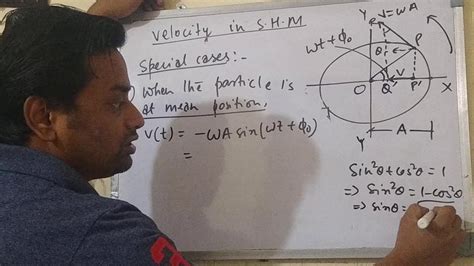 Velocity in S.H.M
Special cases:-
When the particle is
at mean position.
V(t) = -ωA sin(ωt+ϕ₀)
=
Y
V=ωA
ωt+ϕ₀
P
θ
V
O
Q
P'
X
Y
A
Sin²θ+cos²θ = 1
⇒ Sin²θ = 1-cos²θ
⇒ Sinθ = √